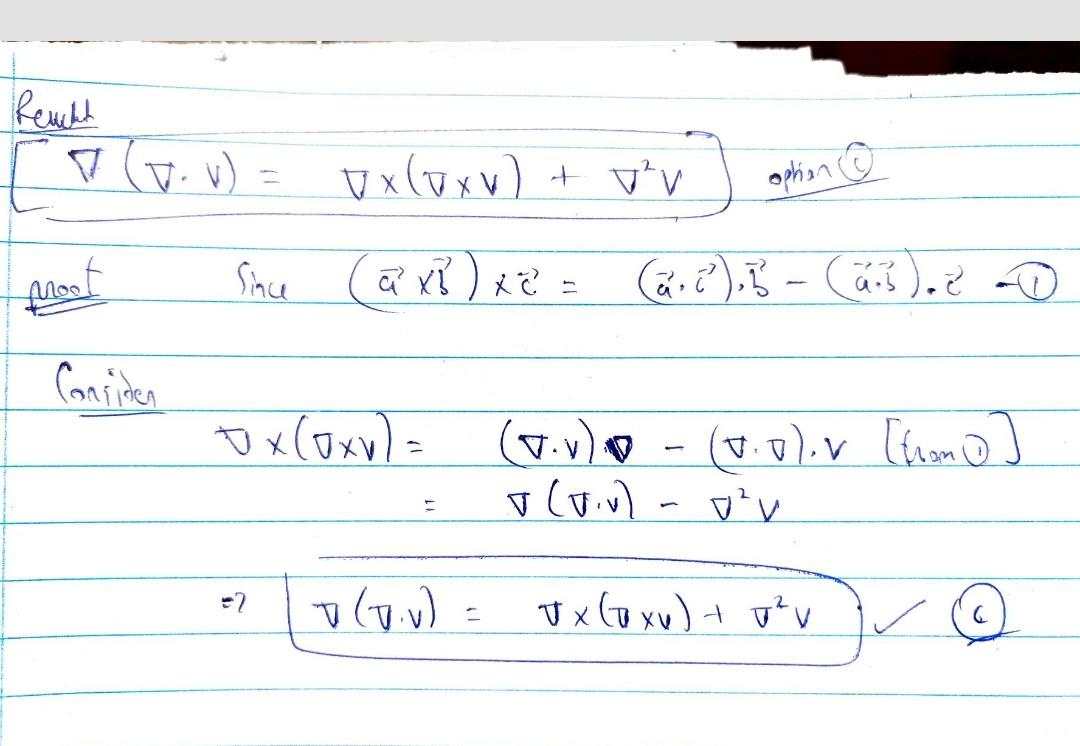 Result
[ ∇ (∇. V) = ∇×(∇×V) + ∇²V ] option ⓒ
proof Since (a⃗ × b⃗) × c⃗ = (a⃗.c⃗).b⃗ − (a⃗.b⃗).c⃗ —①
Consider
∇×(∇×V) = (∇.V).∇ − (∇.∇).V [from ①]
= ∇(∇.V) − ∇²V
=> ∇(∇.V) = ∇×(∇×V) + ∇²V ✓ ⓒ